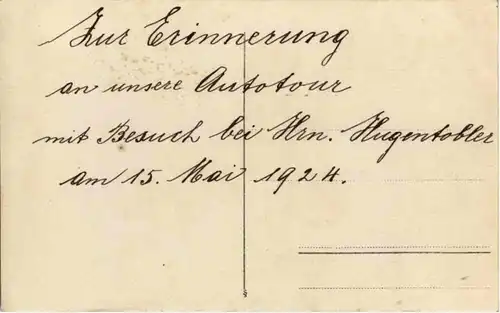 Zur Erinnerung
an unsere Autotour
mit Besuch bei Hrn. Hugentobler
am 15. Mai 1924.